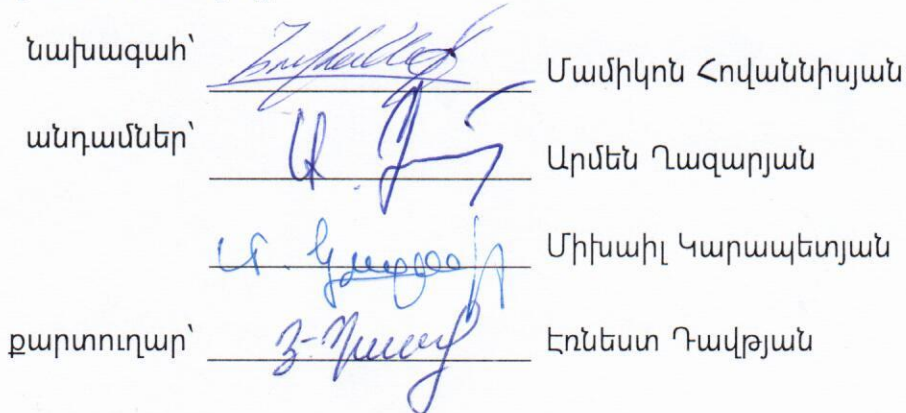 նախագահ՝ Մամիկոն Հովաննիսյան
անդամներ՝ Արմեն Ղազարյան
Միխաիլ Կարապետյան
քարտուղար՝ Էռնեստ Դավթյան